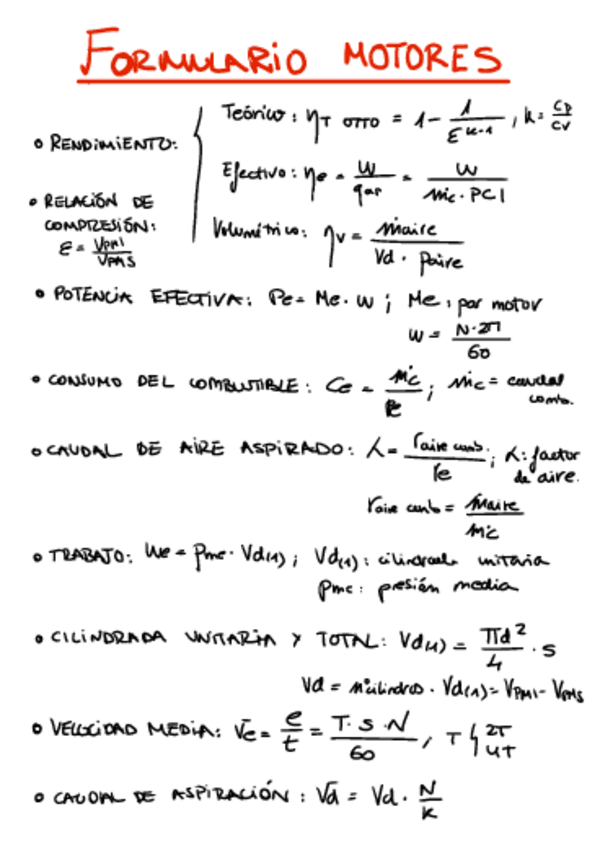 FORMULARIO MOTORES
• RENDIMIENTO:
Teórico: η_T OTTO = 1 - 1/ε^(k-1), k = Cp/Cv
Efectivo: ηe = W/qap = W/(ṁc · PCI)
Volumétrico: ηv = ṁaire/(Vd · ρaire)
• RELACIÓN DE
COMPRESIÓN:
ε = VPMI/VPMS
• POTENCIA EFECTIVA: Pe = Me · w ; Me: par motor
w = N·2π/60
• CONSUMO DEL COMBUSTIBLE: Ce = ṁc/Pe ; ṁc = caudal
comb.
• CAUDAL DE AIRE ASPIRADO: λ = raire comb./re ; λ: factor
de aire.
raire comb = ṁaire/ṁc
• TRABAJO: We = pme · Vd(1) ; Vd(1): cilindrada unitaria
pme: presión media
• CILINDRADA UNITARIA Y TOTAL: Vd(1) = πd²/4 · s
Vd = nºcilindros · Vd(1) = VPMI - VPMS
• VELOCIDAD MEDIA: v̄e = e/t = T·S·N/60 , T { 2T
4T
• CAUDAL DE ASPIRACIÓN : V̇a = Vd · N/K